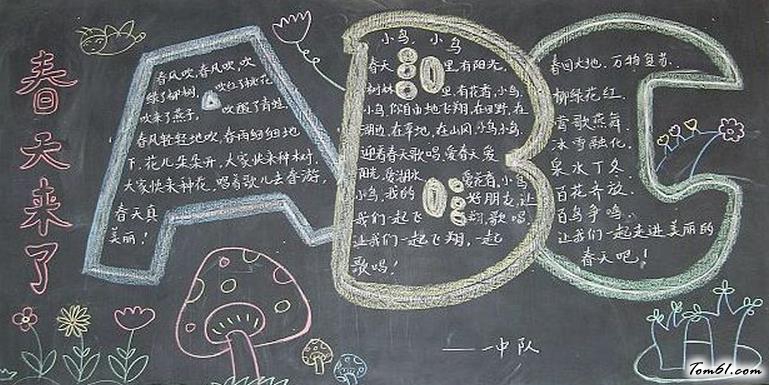 春天来了
春风吹,春风吹,吹
绿了柳树,吹红了桃花,
吹来了燕子,吹醒了青蛙。
春风轻轻地吹,春雨细细地
下,花儿朵朵开,大家快来种树,
大家快来种花,唱着歌儿去春游,
春天真
美丽!
小鸟 小鸟
春天里有阳光,
树林里有花香,小鸟,
小鸟,你自由地飞翔,在田野,在
湖边,在草地,在山冈,小鸟,小鸟,
迎着春天歌唱,爱春天,爱
阳光,爱湖水,爱花香,小鸟,
小鸟,我的好朋友,让
我们一起飞翔,歌唱,
让我们一起飞翔,一起
歌唱!
春回大地,万物复苏.
柳绿花红.
莺歌燕舞.
冰雪融化.
泉水丁冬.
百花齐放.
百鸟争鸣.
让我们一起走进美丽的
春天吧!
ABC
——一中队
Tom61.com